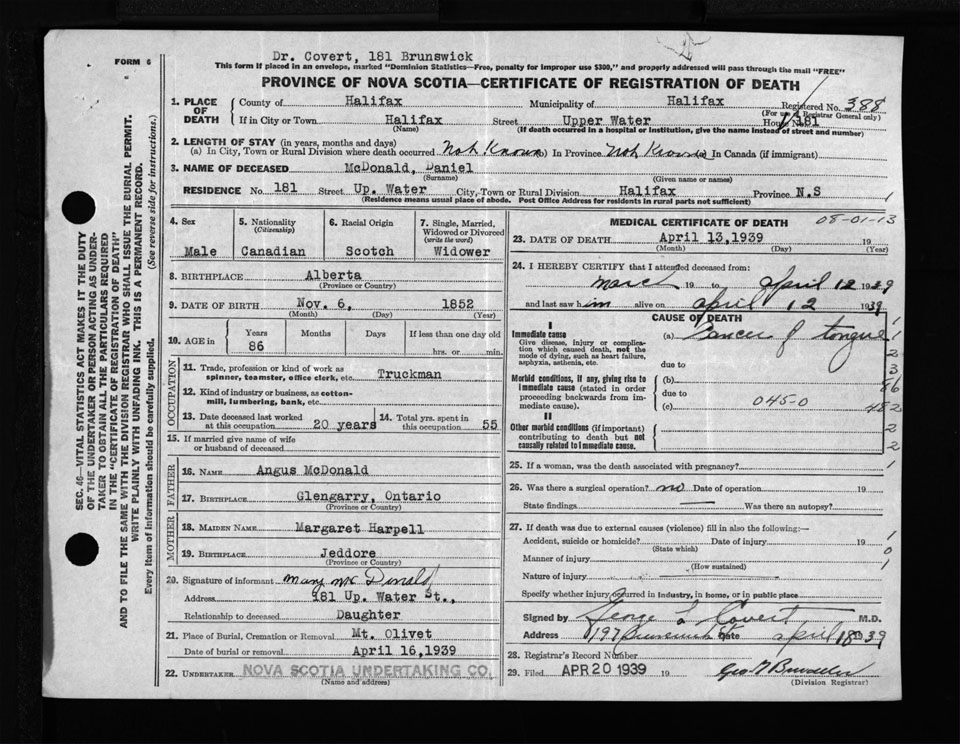 Dr. Covert, 181 Brunswick
FORM 6
This form if placed in an envelope, marked "Dominion Statistics—Free, penalty for improper use $300," and properly addressed will pass through the mail "FREE"
PROVINCE OF NOVA SCOTIA—CERTIFICATE OF REGISTRATION OF DEATH
1. PLACE OF DEATH
County of Halifax Municipality of Halifax Registered No. 388
(For use of Registrar General only)
If in City or Town Halifax Street Upper Water House No. 181
(Name) (If death occurred in a hospital or institution, give the name instead of street and number)
2. LENGTH OF STAY (in years, months and days)
(a) In City, Town or Rural Division where death occurred Not Known (b) In Province Not Known (c) In Canada (if immigrant)
3. NAME OF DECEASED McDonald, Daniel
(Surname) (Given name or names)
RESIDENCE No. 181 Street Up. Water City, Town or Rural Division Halifax Province N.S
(Residence means usual place of abode. Post Office Address for residents in rural parts not sufficient)
1
SEC. 46—VITAL STATISTICS ACT MAKES IT THE DUTY
OF THE UNDERTAKER OR PERSON ACTING AS UNDER-
TAKER TO OBTAIN ALL THE PARTICULARS REQUIRED
IN THE "CERTIFICATE OF REGISTRATION OF DEATH"
AND TO FILE THE SAME WITH THE DIVISION REGISTRAR WHO SHALL ISSUE THE BURIAL PERMIT.
WRITE PLAINLY WITH UNFADING INK. THIS IS A PERMANENT RECORD.
Every item of information should be carefully supplied. (See reverse side for instructions.)
4. Sex
Male
5. Nationality
(Citizenship)
Canadian
6. Racial Origin
Scotch
7. Single, Married,
Widowed or Divorced
(write the word)
Widower
8. BIRTHPLACE Alberta
(Province or Country)
9. DATE OF BIRTH Nov. 6, 1852
(Month) (Day) (Year)
10. AGE in
Years Months Days If less than one day old
86 hrs. or min.
OCCUPATION
11. Trade, profession or kind of work as
spinner, teamster, office clerk, etc. Truckman
12. Kind of industry or business, as cotton-
mill, lumbering, bank, etc.
13. Date deceased last worked
at this occupation 20 years
14. Total yrs. spent in
this occupation 55
15. If married give name of wife
or husband of deceased
FATHER
16. NAME Angus McDonald
17. BIRTHPLACE Glengarry, Ontario
(Province or Country)
MOTHER
18. MAIDEN NAME Margaret Harpell
19. BIRTHPLACE Jeddore
(Province or Country)
20. Signature of informant Mary McDonald
Address 181 Up. Water St.,
Relationship to deceased Daughter
21. Place of Burial, Cremation or Removal Mt. Olivet
Date of burial or removal April 16, 1939
22. UNDERTAKER NOVA SCOTIA UNDERTAKING CO.
(Name and address)
MEDICAL CERTIFICATE OF DEATH
08-01-13
23. DATE OF DEATH April 13, 1939 19
(Month) (Day) (Year)
24. I HEREBY CERTIFY that I attended deceased from:
March 19 to April 12 1939
and last saw him alive on April 12 1939
CAUSE OF DEATH
I
Immediate cause
Give disease, injury or complica-
tion which caused death, not the
mode of dying, such as heart failure,
asphyxia, asthenia, etc.
(a) Cancer of tongue
due to
Morbid conditions, if any, giving rise to
immediate cause (stated in order
proceeding backwards from im-
mediate cause).
(b)
due to
(c) 045-0
II
Other morbid conditions (if important)
contributing to death but not
causally related to immediate cause.
1
1
2
3
86
482
2
2
1
25. If a woman, was the death associated with pregnancy?
26. Was there a surgical operation? no Date of operation 19
State findings — Was there an autopsy?
27. If death was due to external causes (violence) fill in also the following:—
Accident, suicide or homicide? Date of injury 19
(State which)
Manner of injury
(How sustained)
Nature of injury
Specify whether injury occurred in industry, in home, or in public place
1
0
1
Signed by George L Covert M.D.
Address 197 Brunswick St Date April 18 1939
28. Registrar's Record Number
29. Filed APR 20 1939 19
(Division Registrar)